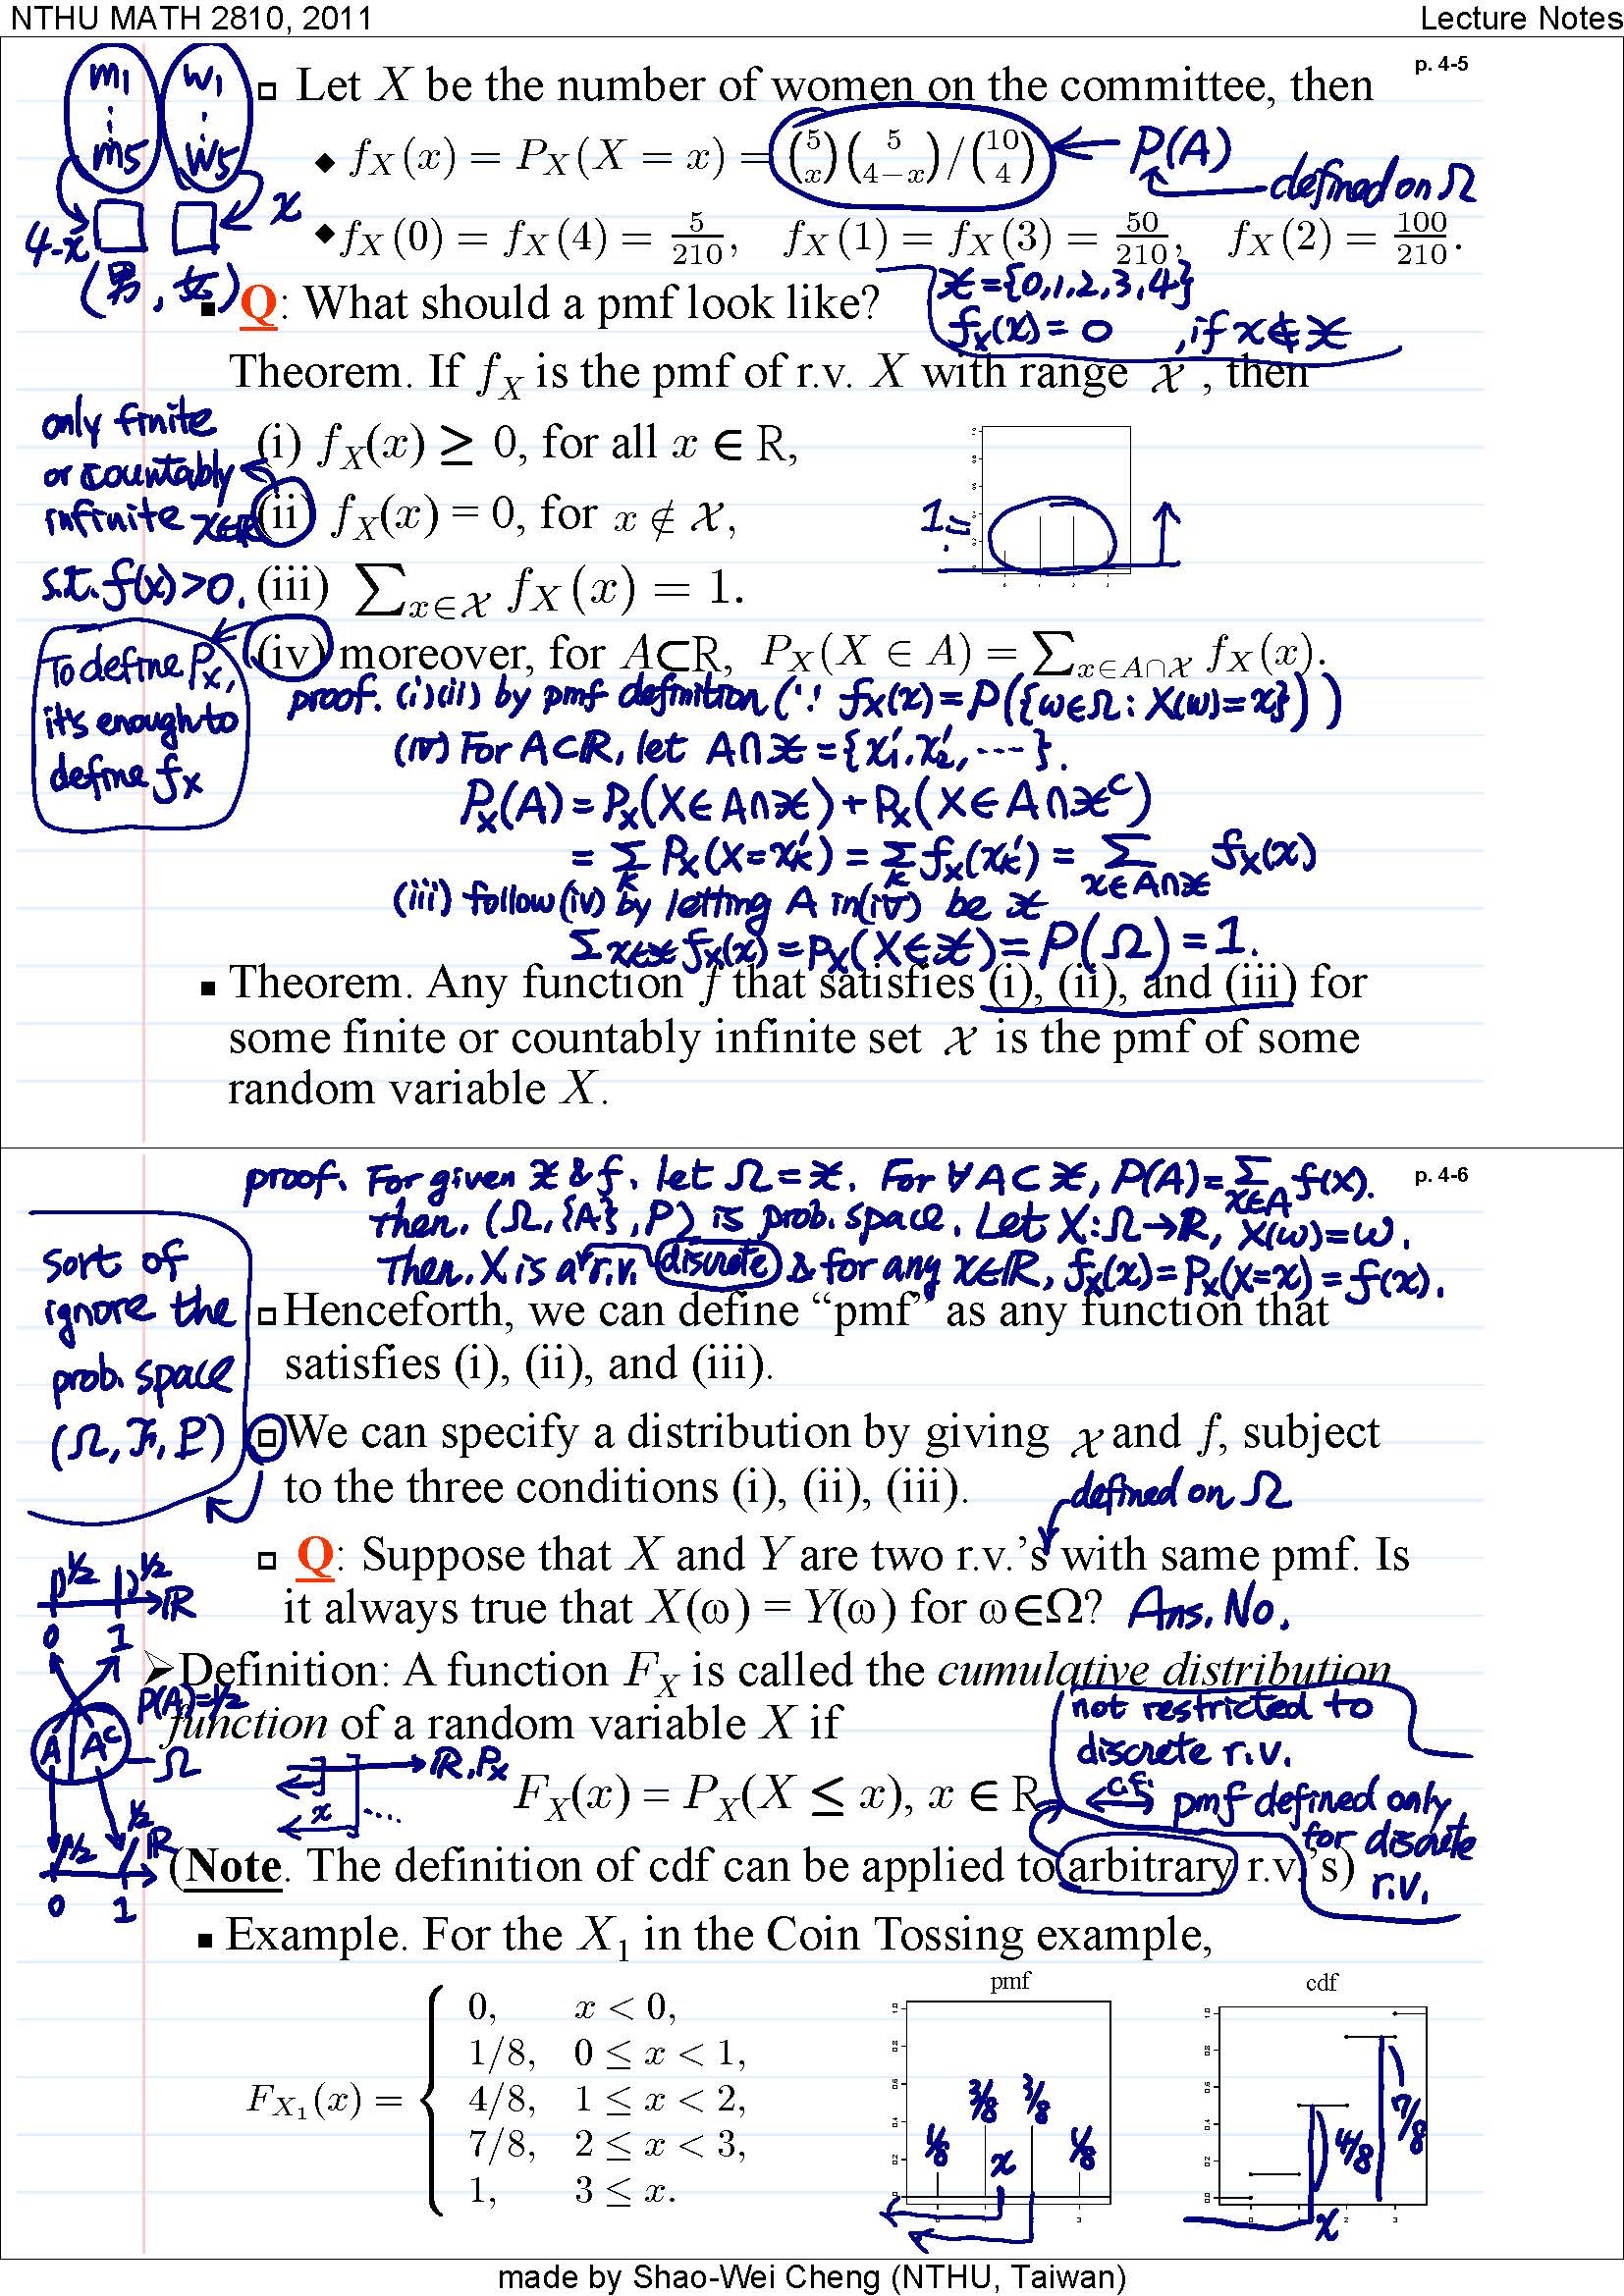 NTHU MATH 2810, 2011 Lecture Notes
p. 4-5
m1 w1
⋮ ⋮
m5 w5
4-x x
(男, 女)
□ Let X be the number of women on the committee, then
◆ f_X(x) = P_X(X = x) = (5 choose x)(5 choose 4−x)/(10 choose 4) ← P(A)
defined on Ω
◆ f_X(0) = f_X(4) = 5/210, f_X(1) = f_X(3) = 50/210, f_X(2) = 100/210.
𝒳 = {0,1,2,3,4}
f_X(x) = 0 , if x ∉ 𝒳
▪ Q: What should a pmf look like?
Theorem. If f_X is the pmf of r.v. X with range 𝒳, then
(i) f_X(x) ≥ 0, for all x ∈ R,
(ii) f_X(x) = 0, for x ∉ 𝒳,
(iii) ∑_{x∈𝒳} f_X(x) = 1.
(iv) moreover, for A⊂R, P_X(X ∈ A) = ∑_{x∈A∩𝒳} f_X(x).
only finite
or countably
infinite x∈ℝ
s.t. f(x)>0.
To define P_X,
it's enough to
define f_X
1 =
proof. (i)(ii) by pmf definition (∵ f_X(x) = P({ω∈Ω : X(ω)=x}))
(iv) For A⊂ℝ, let A∩𝒳 = {x₁', x₂', ⋯}.
P_X(A) = P_X(X∈A∩𝒳) + P_X(X∈A∩𝒳^C)
= ∑_k P_X(X=x_k') = ∑_k f_X(x_k') = ∑_{x∈A∩𝒳} f_X(x)
(iii) follow (iv) by letting A in (iv) be 𝒳
∑_{x∈𝒳} f_X(x) = P_X(X∈𝒳) = P(Ω) = 1.
▪ Theorem. Any function f that satisfies (i), (ii), and (iii) for
some finite or countably infinite set 𝒳 is the pmf of some
random variable X.
p. 4-6
proof. For given 𝒳 & f. let Ω = 𝒳. For ∀A⊂𝒳, P(A) = ∑_{x∈A} f(x).
Then. (Ω, {A}, P) is prob. space. Let X: Ω→ℝ, X(ω)=ω.
Then. X is a discrete r.v. & for any x∈ℝ, f_X(x) = P_X(X=x) = f(x).
□ Henceforth, we can define “pmf” as any function that
satisfies (i), (ii), and (iii).
sort of
ignore the
prob. space
(Ω, ℱ, P)
□ We can specify a distribution by giving 𝒳 and f, subject
to the three conditions (i), (ii), (iii).
defined on Ω
□ Q: Suppose that X and Y are two r.v.’s with same pmf. Is
it always true that X(ω) = Y(ω) for ω∈Ω? Ans. No.
1/2 1/2
ℝ
0 1
P(A)=1/2
A A^c Ω
1/2 1/2 ℝ
0 1
➢ Definition: A function F_X is called the cumulative distribution
function of a random variable X if
not restricted to
discrete r.v.
cf. pmf defined only
for discrete
r.v.
ℝ, P_X
x ...
F_X(x) = P_X(X ≤ x), x ∈ R
(Note. The definition of cdf can be applied to arbitrary r.v.’s)
▪ Example. For the X₁ in the Coin Tossing example,
F_{X₁}(x) =
0, x < 0,
1/8, 0 ≤ x < 1,
4/8, 1 ≤ x < 2,
7/8, 2 ≤ x < 3,
1, 3 ≤ x.
pmf
1/8 3/8 3/8 1/8
x
cdf
4/8 7/8
x
made by Shao-Wei Cheng (NTHU, Taiwan)